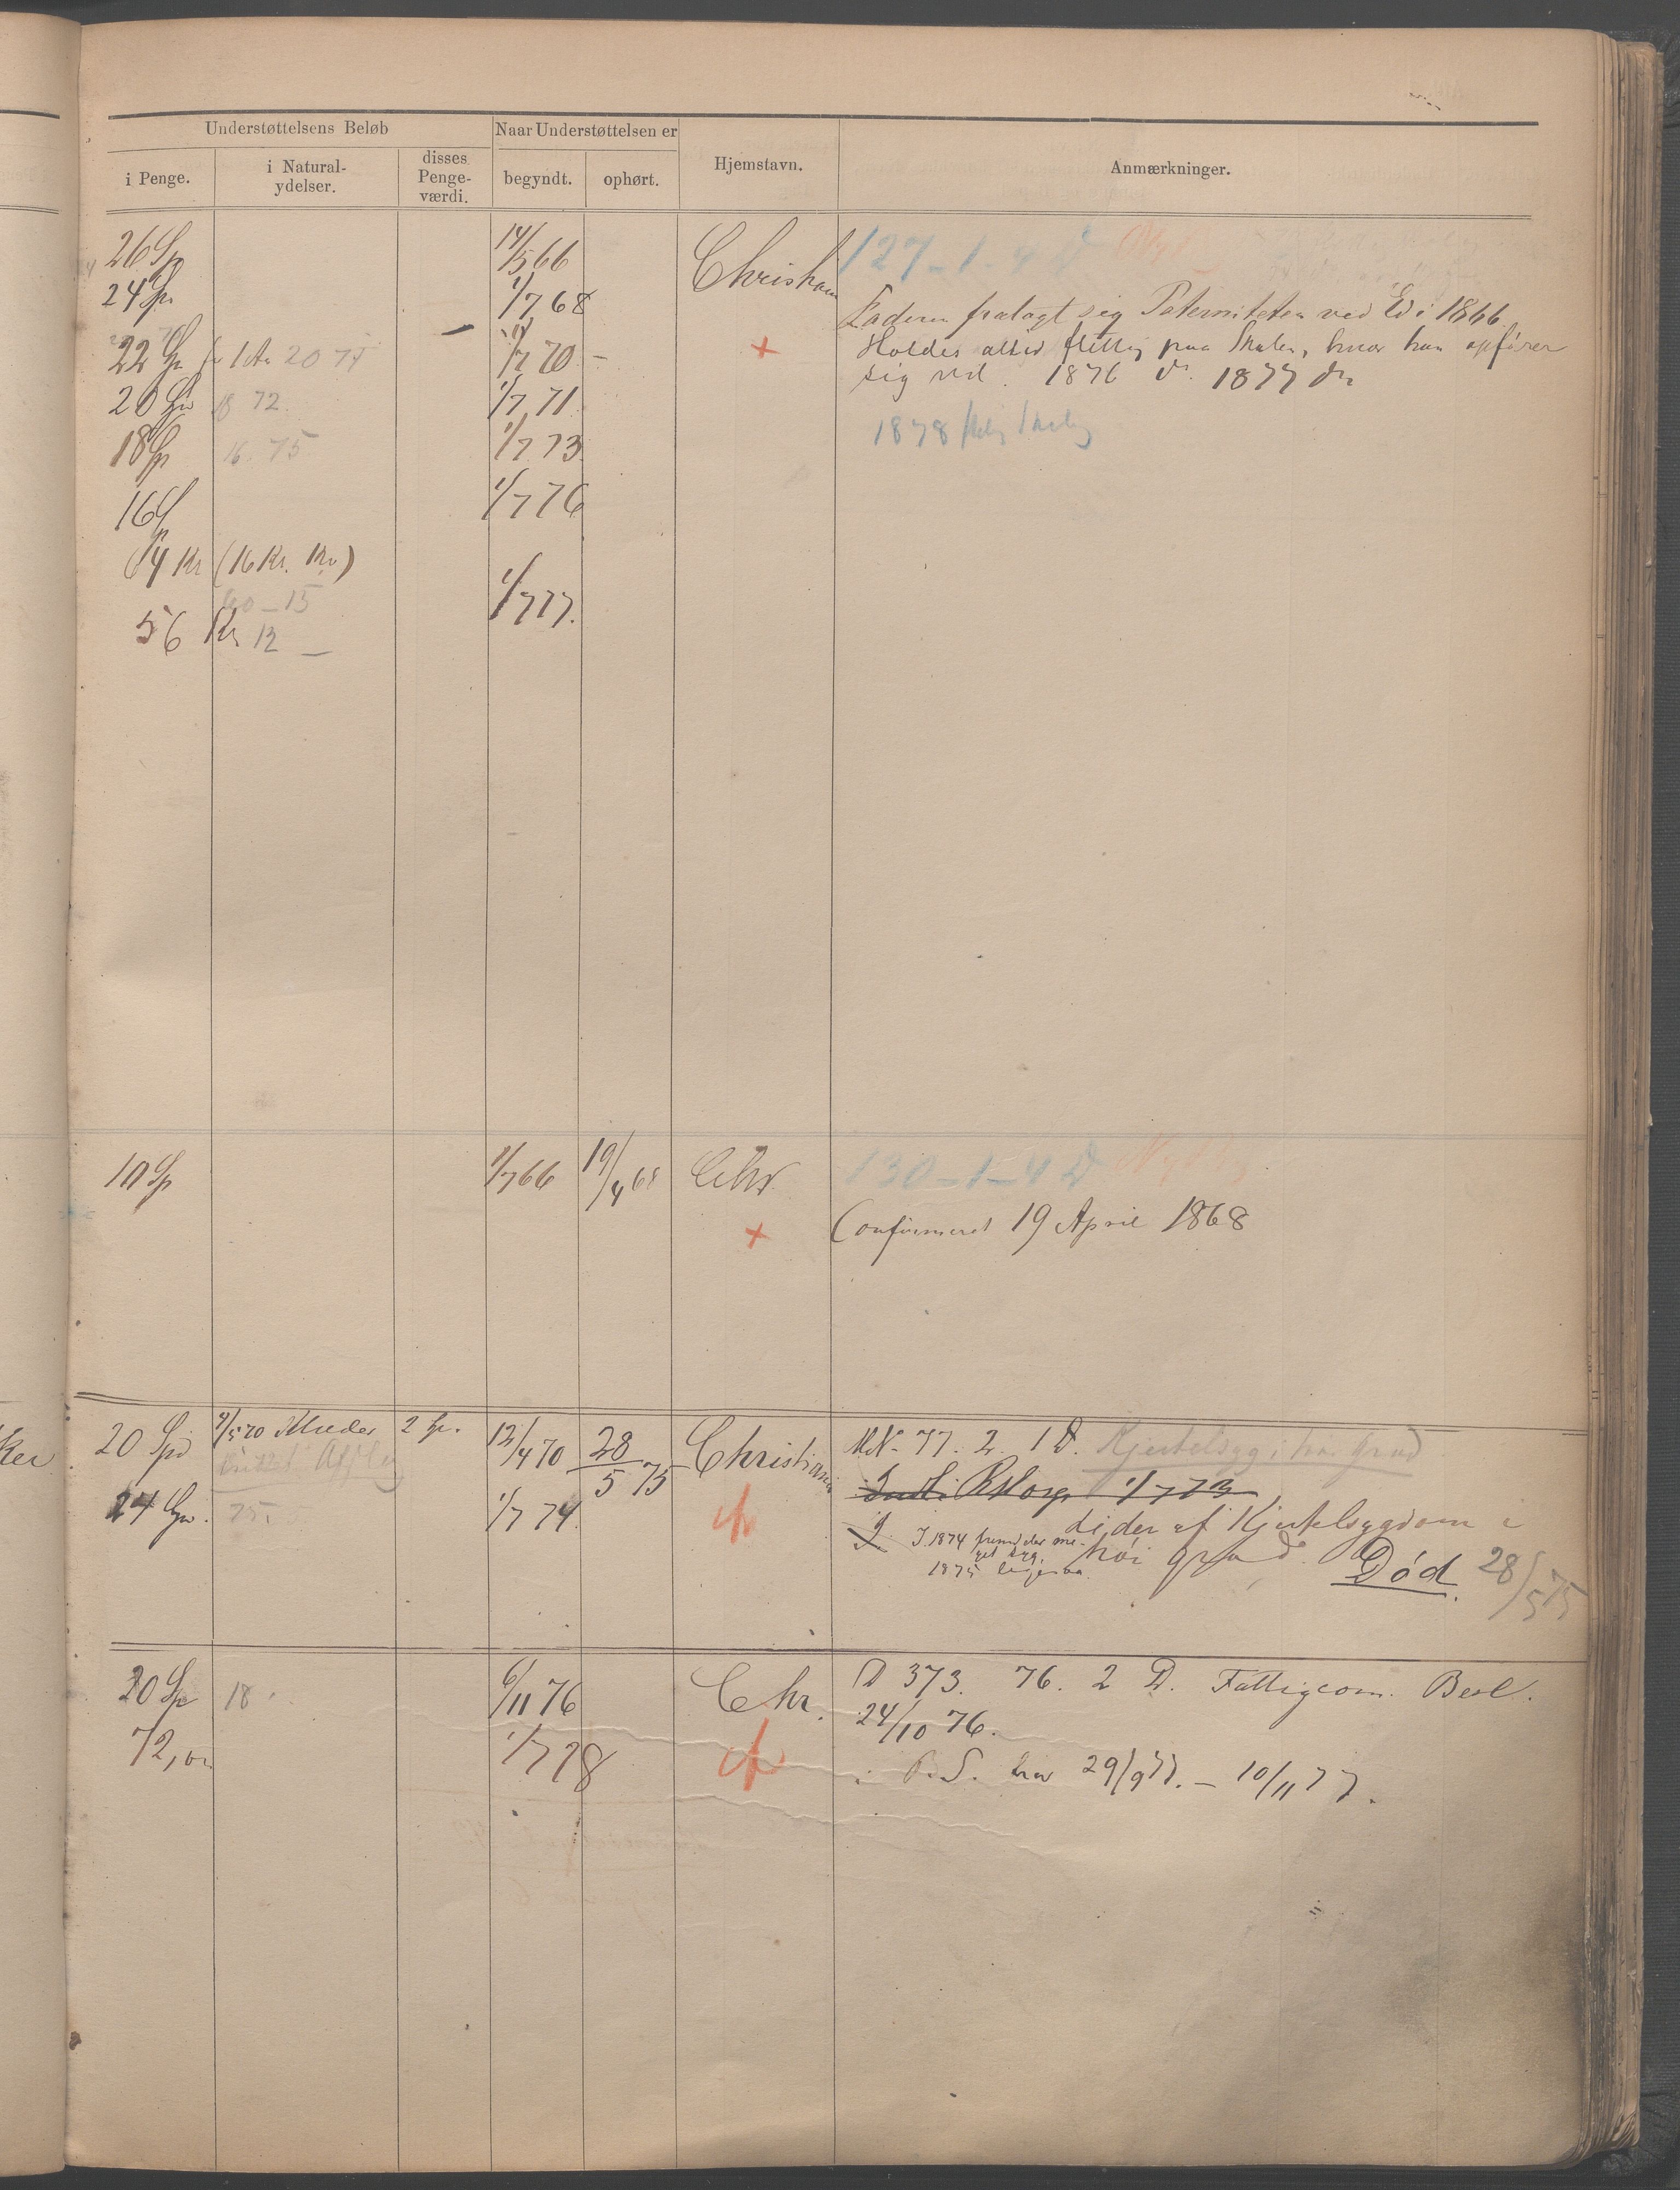 Understøttelsens Beløb
Naar Understøttelsen er
i Penge.
i Natural-
ydelser.
disses
Penge-
værdi.
begyndt.
ophørt.
Hjemstavn.
Anmærkninger.
26 Sp
14/5 66
Christiania
127 - 1 - 4 D
24 Sp
1/7 68
Faderen fralagt sig Paterniteten ved Ed i 1866
22 Sp 1 Aar 20 74
1/7 70
Holdes altid flittig paa Skolen, hvor han opfører
sig vel. 1876 do 1877 do
20 Sp 18 72
1/7 71
1878 Skoleg
18 Sp 16 75
1/7 73
16 Sp
1/7 76
64 Kr (16 Kr. Kv)
60 - 15
1/7 77.
56 Kr 12 -
10 Sp
1/7 66
19/4 68
Chr
130 - 1 - 4 D
Confirmeret 19 April 1868
20 Spd
4/5 70 Klæder
2 Sp.
12/4 70
28/5 75
Christiania
MN- 77. 2. 1 D. Kjertelsyg i høi Grad
1/7 73
24 Spd.
75.
1/7 74.
lider af Kjertelsygdom i
høi grad. Død. 28/5 75
I 1874 fremdeles me-
get syg.
1875 ligesaa
20 Sp
18
6/11 76
Chr.
D 373. 76. 2 D. Fattigcom. Besl.
24/10 76.
72,00
1/7 78
i P. S. hos 29/9 77. - 10/11 77.